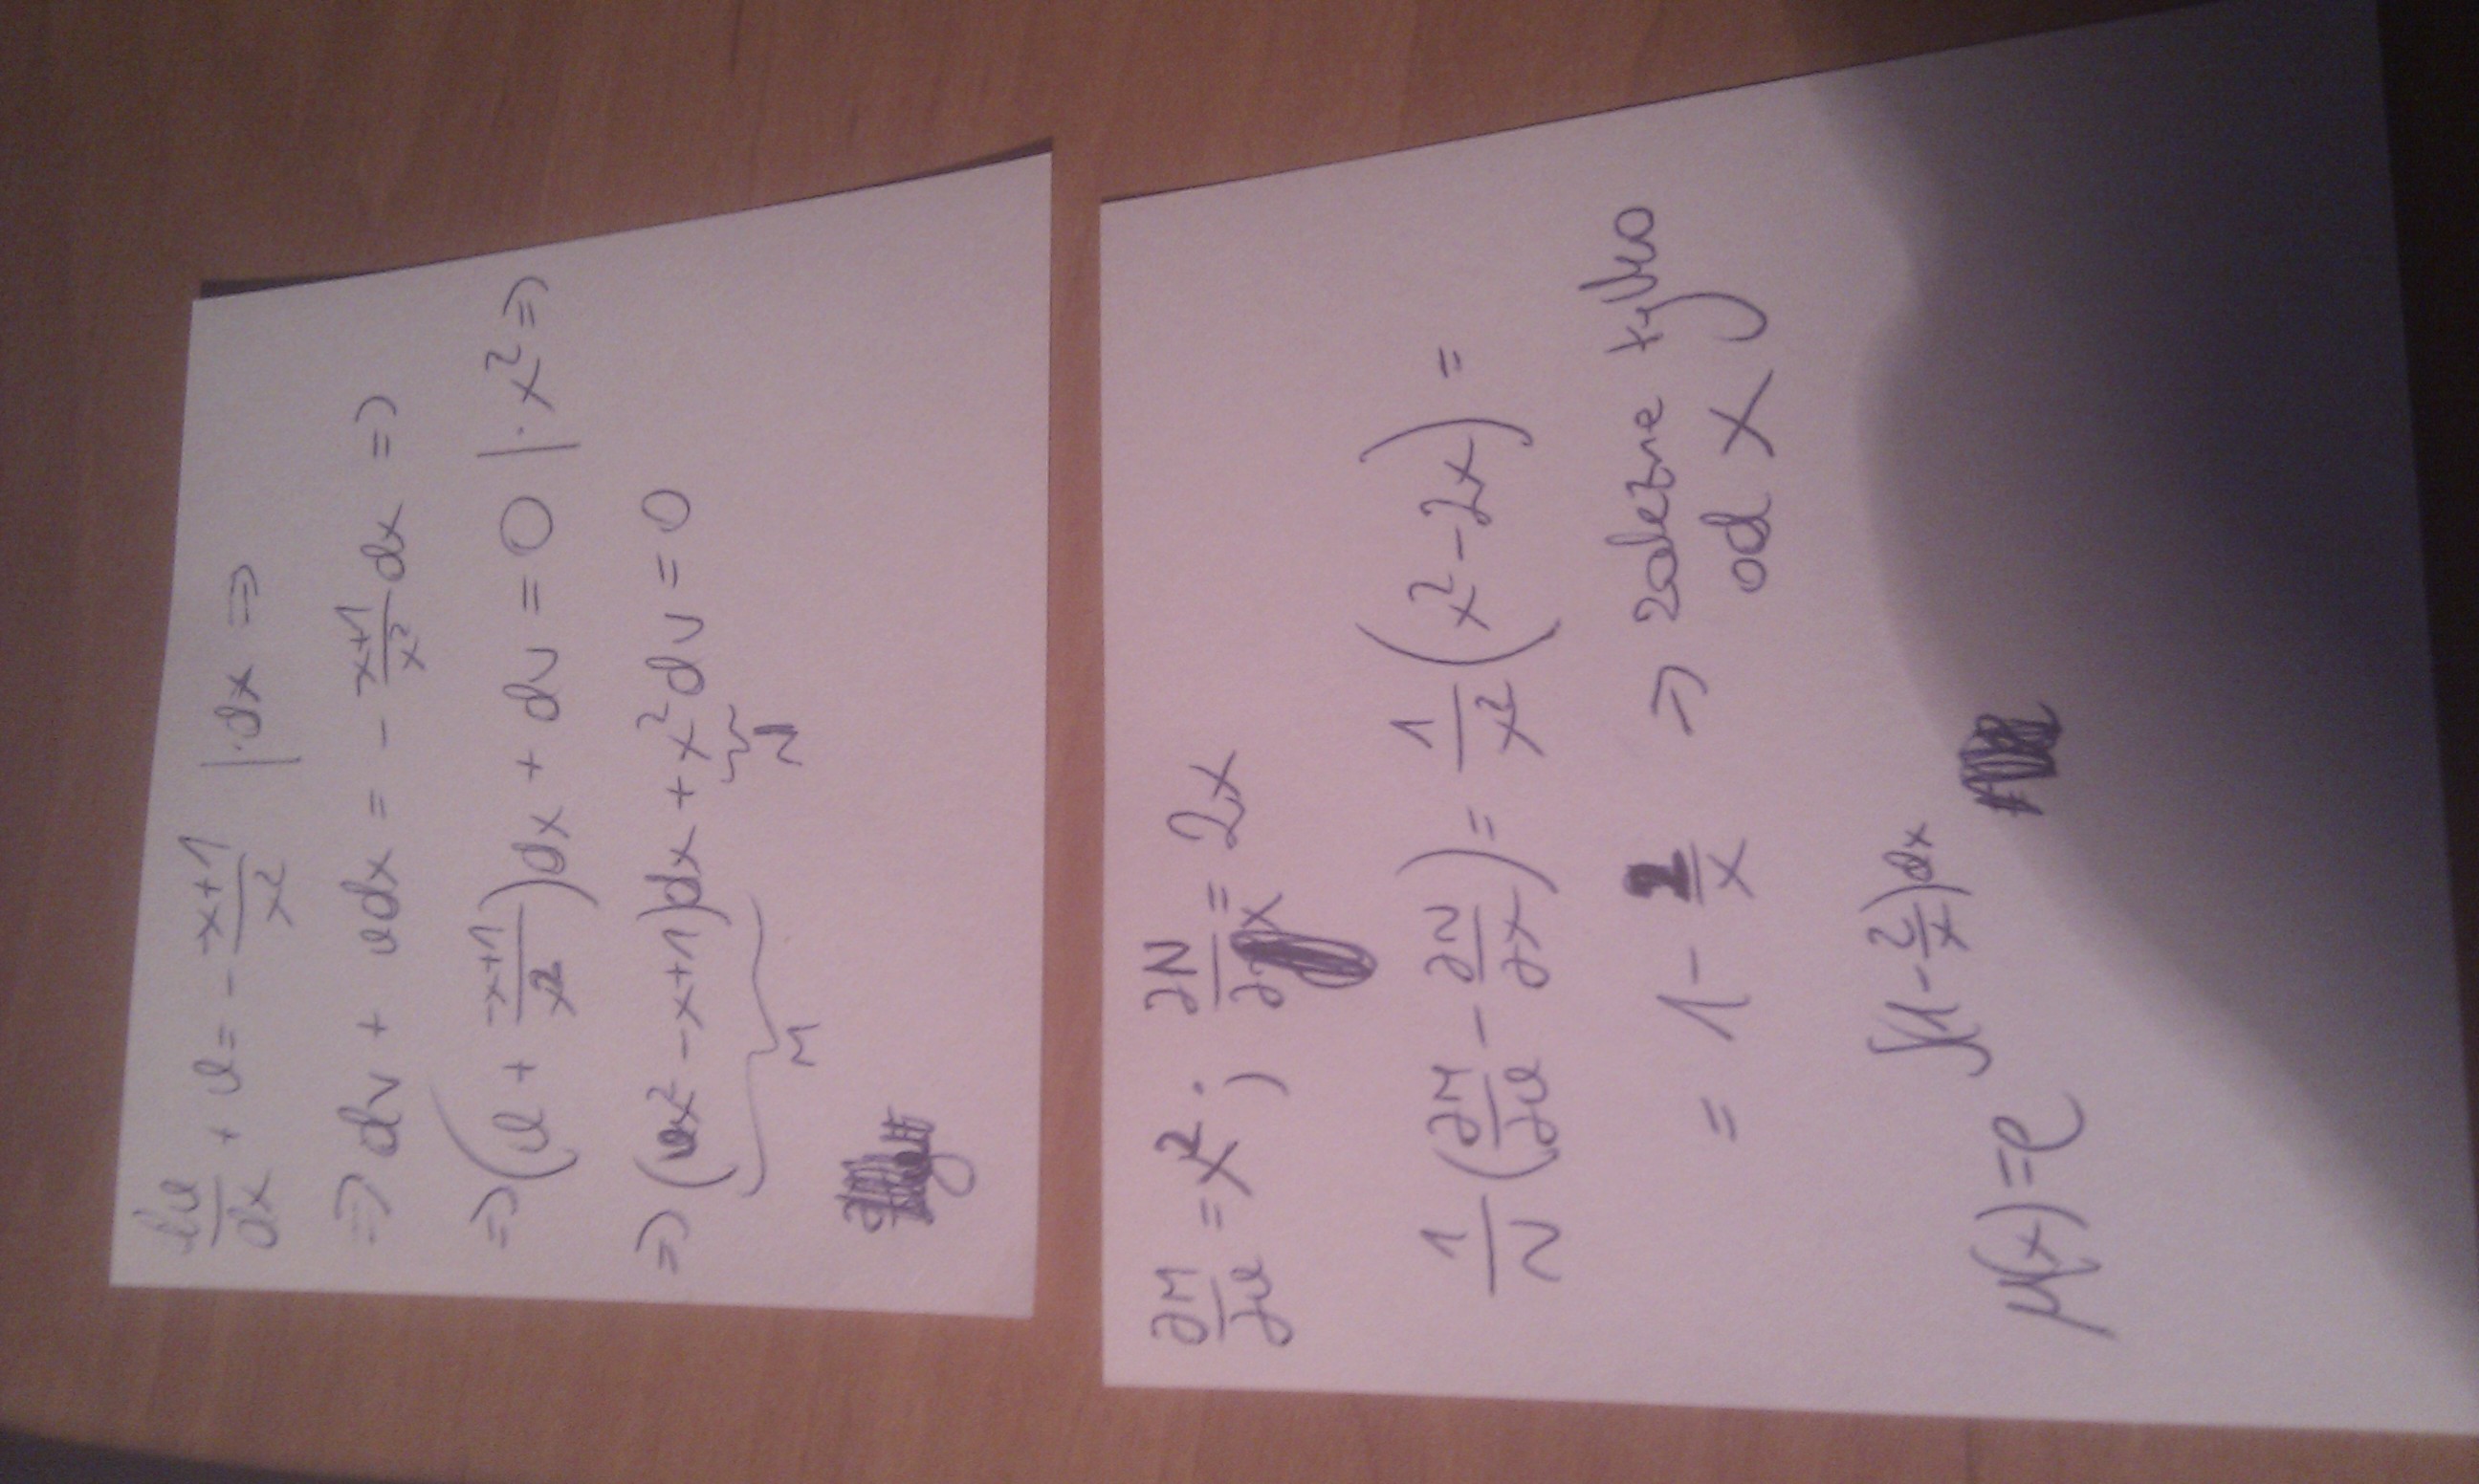 dv/dx + v = - -x+1/x² |·dx ⇒
⇒ dv + vdx = - -x+1/x² dx ⇒
⇒ (v + -x+1/x²)dx + dv = 0 |·x² ⇒
⇒ (vx² -x+1)dx + x²dv = 0
M N
∂M/∂v = x² ; ∂N/∂x = 2x
1/N (∂M/∂v - ∂N/∂x) = 1/x² (x² - 2x) =
= 1 - 2/x → zależne tylko
od x
μ(x) = e^∫(1 - 2/x)dx